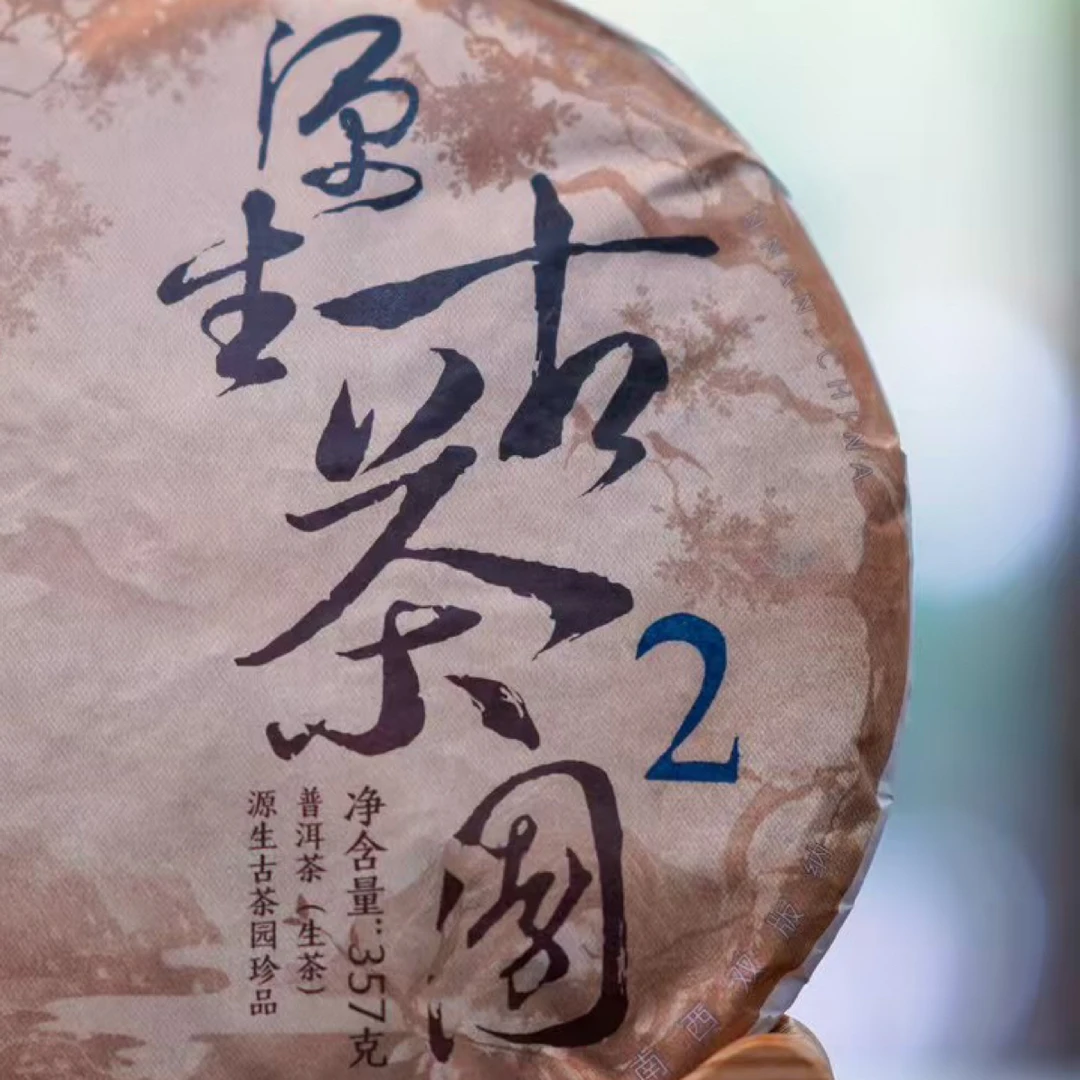 源生
古茶園
2
净含量:357克
普洱茶（生茶）
源生古茶园珍品
NNAN CHINA
南西双版纳